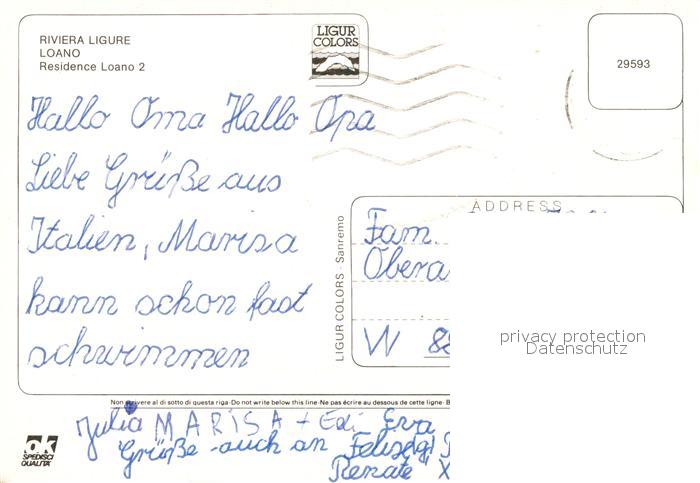 RIVIERA LIGURE
LOANO
Residence Loano 2
LIGUR
COLORS
29593
Hallo Oma Hallo Opa
Liebe Grüße aus
Italien, Marisa
kann schon fast
schwimmen
ADDRESS
Fam.
Obera
W 88
LIGUR COLORS - Sanremo
privacy protection
Datenschutz
Non scrivere al di sotto di questa riga-Do not write below this line-Ne pas écrire au dessous de cette ligne-
Julia MARISA + Edi Eva
Grüße auch an
Renate
ok
SPEDISCI
QUALITÀ